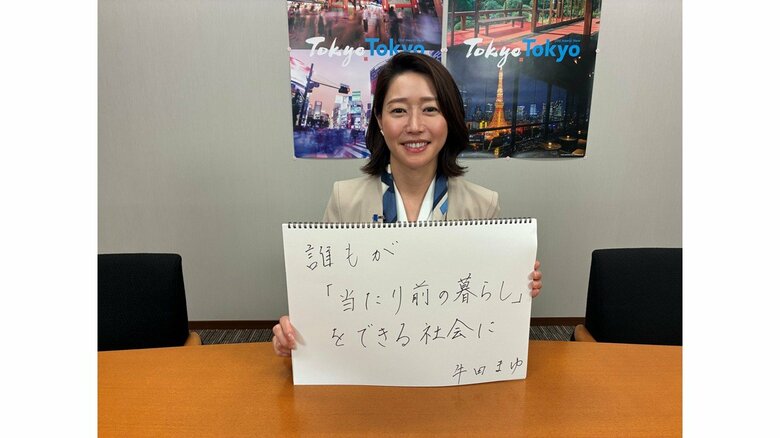 Tokyo Tokyo
Tokyo Tokyo
誰もが
「当たり前の暮らし」
をできる社会に
牛田まゆ